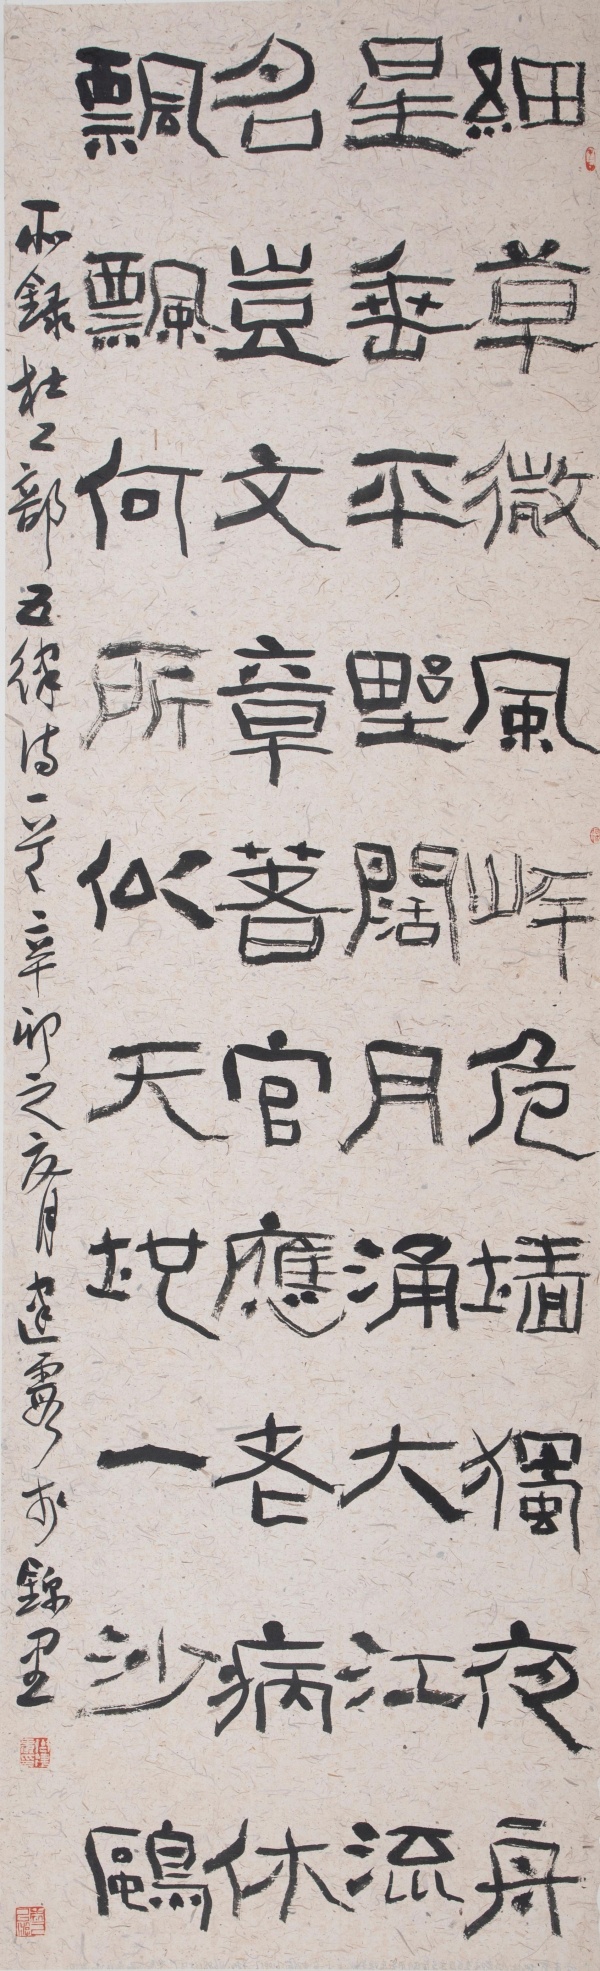 細草微風岸危墙獨夜舟
星垂平野闊月涌大江流
名豈文章著官應老病休
飄飄何所似天地一沙鷗
錄杜工部五律诗一首辛卯之夏月建霞於錦里